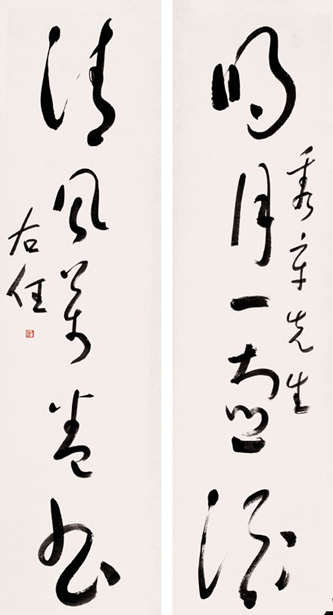 先生
明月一壺酒
清風萬卷書
右任